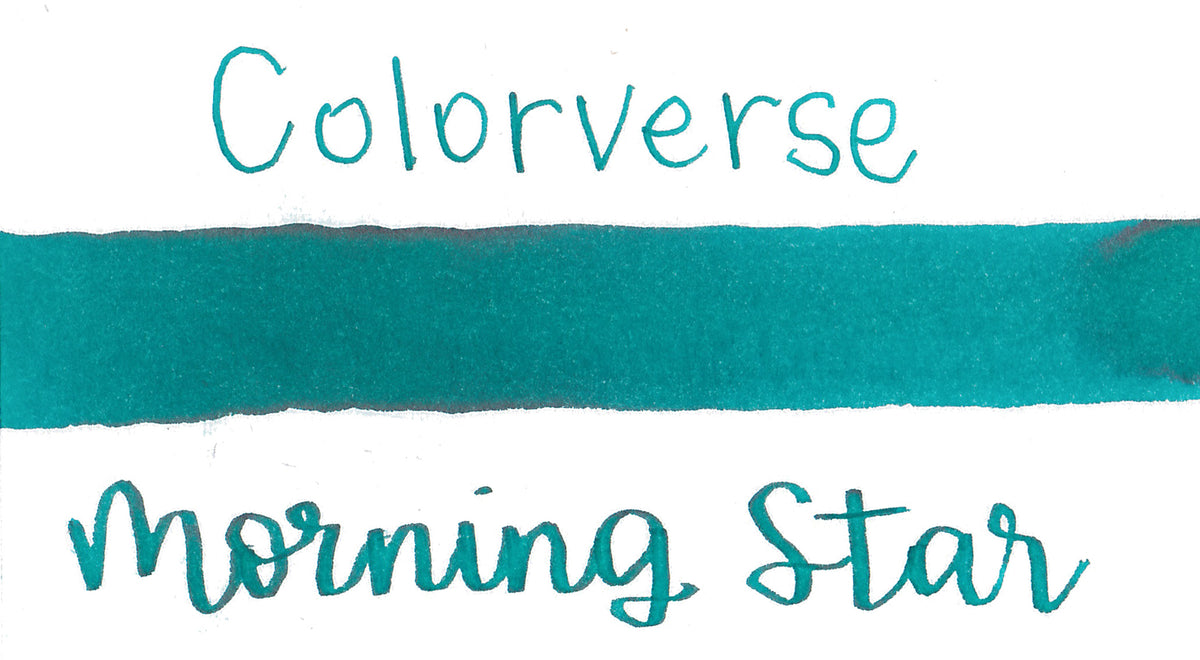 Colorverse
Morning Star